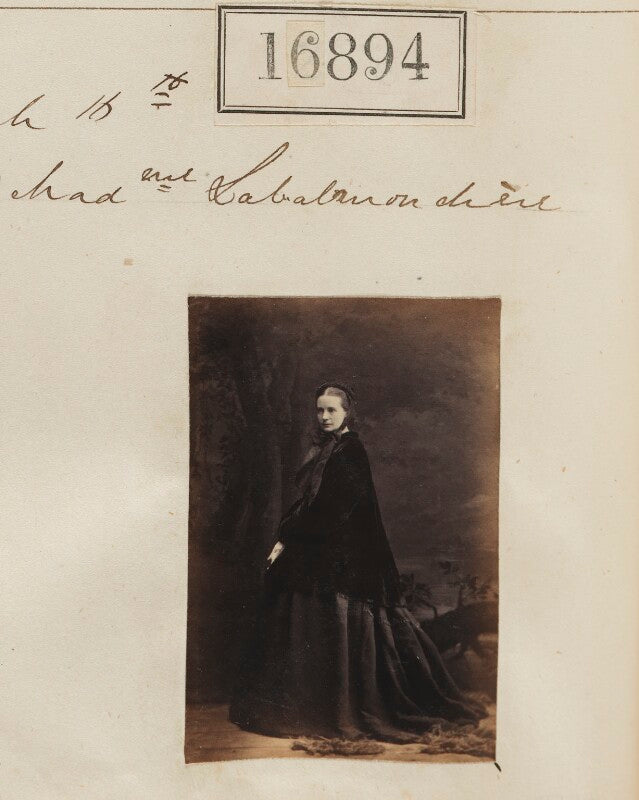 16894
16th
Madme Labalmondière